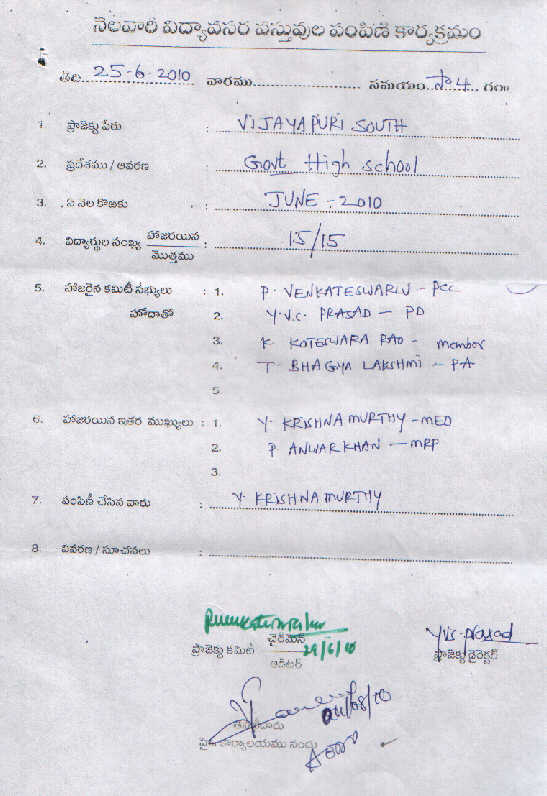 నెలవారి విద్యావసర వస్తువుల పంపిణి కార్యక్రమం
తేది. 25-6-2010 వారము.......... సమయం. సా4 గం॥
1. ప్రాజెక్టు పేరు : VIJAYAPURI SOUTH
2. ప్రదేశము / ఆవరణ : Govt High school
3. ఏ నెల కొఱకు : JUNE - 2010
4. విద్యార్థుల సంఖ్య హాజరయిన / మొత్తము : 15/15
5. హాజరైన కమిటీ సభ్యులు : 1. P. VENKATESWARLU - PCC
హోదాతో 2. Y.V.C. PRASAD - PD
3. K. KOTESWARA RAO - Member
4. T. BHAGYA LAKSHMI - PA
5.
6. హాజరయిన ఇతర ముఖ్యులు : 1. Y. KRISHNA MURTHY - MEO
2. P. ANWAR KHAN - MRP
3.
7. పంపిణీ చేసిన వారు : Y. KRISHNA MURTHY
8. వివరణ / సూచనలు :
ఛైర్మెన్
ప్రాజెక్టు కమిటీ 29/6/10
ఆడిటర్
Y.V.C. Prasad
ప్రాజెక్టు డైరెక్టర్
04/08/10
కార్యాలయము నందు